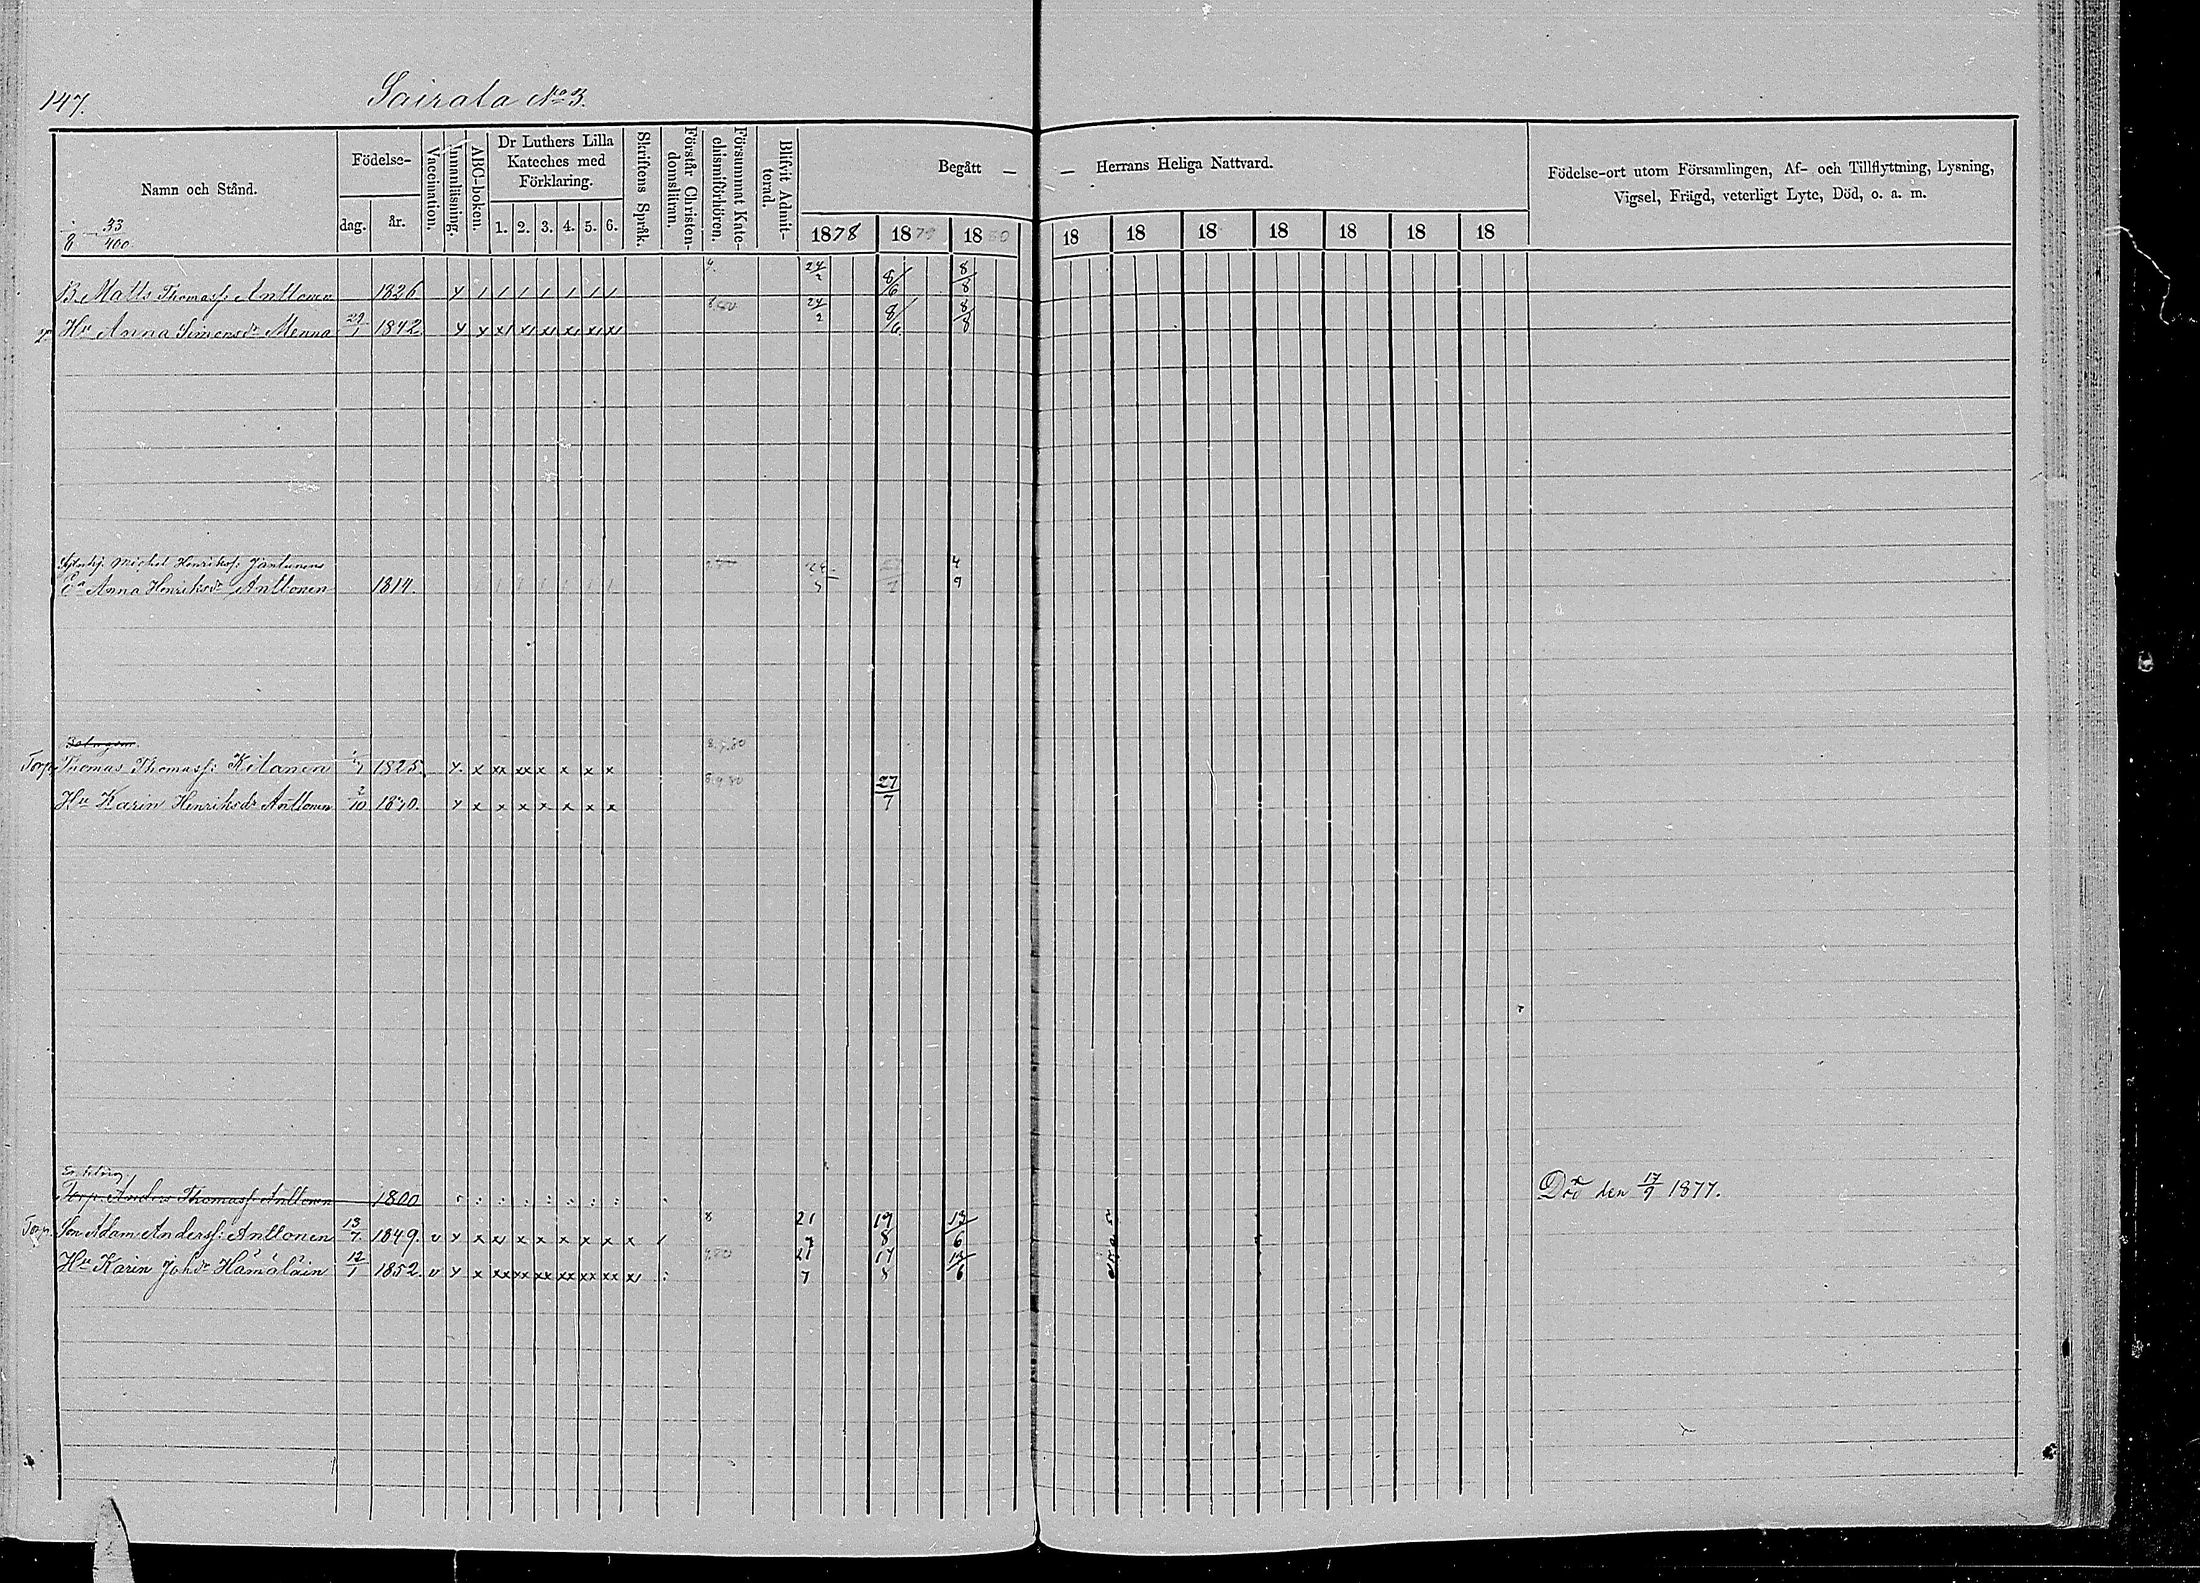 147.
Sairala No 3.
Namn och Stånd.
33/400
Födelse-
dag.
år.
Vaccination.
Innanläsning.
ABC-boken.
Dr Luthers Lilla
Kateches med
Förklaring.
1. 2. 3. 4. 5. 6.
Skriftens Språk.
Förstår Christen-
domsläran.
Försummat Kate-
chismiförhören.
Blifvit Admit-
terad.
Begått —
— Herrans Heliga Nattvard.
1878 1879 1880 18 18 18 18 18 18 18
Födelse-ort utom Församlingen, Af- och Tillflyttning, Lysning,
Vigsel, Frägd, veterligt Lyte, Död, o. a. m.
B. Matts Thomass: Anttonen 1826 24/2 8/6 8/8
Hu Anna Simonsdr Menna 29/1 1842 24/2 8/6 8/8
Michel Henrikss. Jantunens
Ea Anna Henriksdr Anttonen 1814. 4/9
Torp. Thomas Thomass: Kilanen 1825. 8.9.80
Hu Karin Henriksdr Anttonen 2/10 1830. 8.9.80 27/7
Torp. Anders Thomass: Anttonen 1800 Död den 17/9 1877.
Torp. Son Adam Anderss: Anttonen 13/7 1849. v x x x x x x x x x 8 21/7 17/8 13/6
Hu Karin Johdr Hämäläin 12/1 1852. v 21/7 17/8 13/6